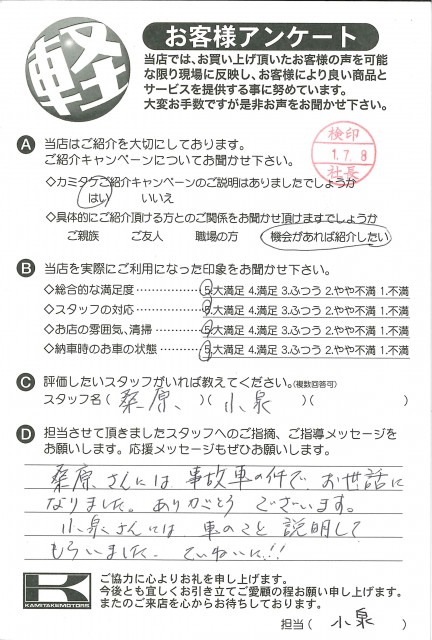 軽
お客様アンケート
当店では、お買い上げ頂いたお客様の声を可能
な限り現場に反映し、お客様により良い商品と
サービスを提供する事に努めています。
大変お手数ですが是非お声をお聞かせ下さい。
検印
1.7.8
社長
A 当店はご紹介を大切にしております。
ご紹介キャンペーンについてお聞かせ下さい。
◇カミタケご紹介キャンペーンのご説明はありましたでしょうか
はい いいえ
◇具体的にご紹介頂ける方とのご関係をお聞かせ頂けますでしょうか
ご親族 ご友人 職場の方 機会があれば紹介したい
B 当店を実際にご利用になった印象をお聞かせ下さい。
◇総合的な満足度 ⋯⋯⋯⋯ 5.大満足 4.満足 3.ふつう 2.やや不満 1.不満
◇スタッフの対応 ⋯⋯⋯⋯ 5.大満足 4.満足 3.ふつう 2.やや不満 1.不満
◇お店の雰囲気、清掃 ⋯⋯⋯ 5.大満足 4.満足 3.ふつう 2.やや不満 1.不満
◇納車時のお車の状態 ⋯⋯⋯ 5.大満足 4.満足 3.ふつう 2.やや不満 1.不満
C 評価したいスタッフがいれば教えてください。(複数回答可)
スタッフ名( 桑原、 )( 小泉 )( )
D 担当させて頂きましたスタッフへのご指摘、ご指導メッセージを
お願いします。応援メッセージもぜひお願いします。
桑原さんには 事故車の件で お世話に
なりました。ありがとう ございます。
小泉さんには 車のこと 説明して
もらいました。ていねいに!!
K
KAMITAKEMOTORS
ご協力に心よりお礼を申し上げます。
今後とも宜しくお引き立てご愛顧の程お願い申し上げます。
またのご来店を心からお待ちしております。
担当( 小泉 )